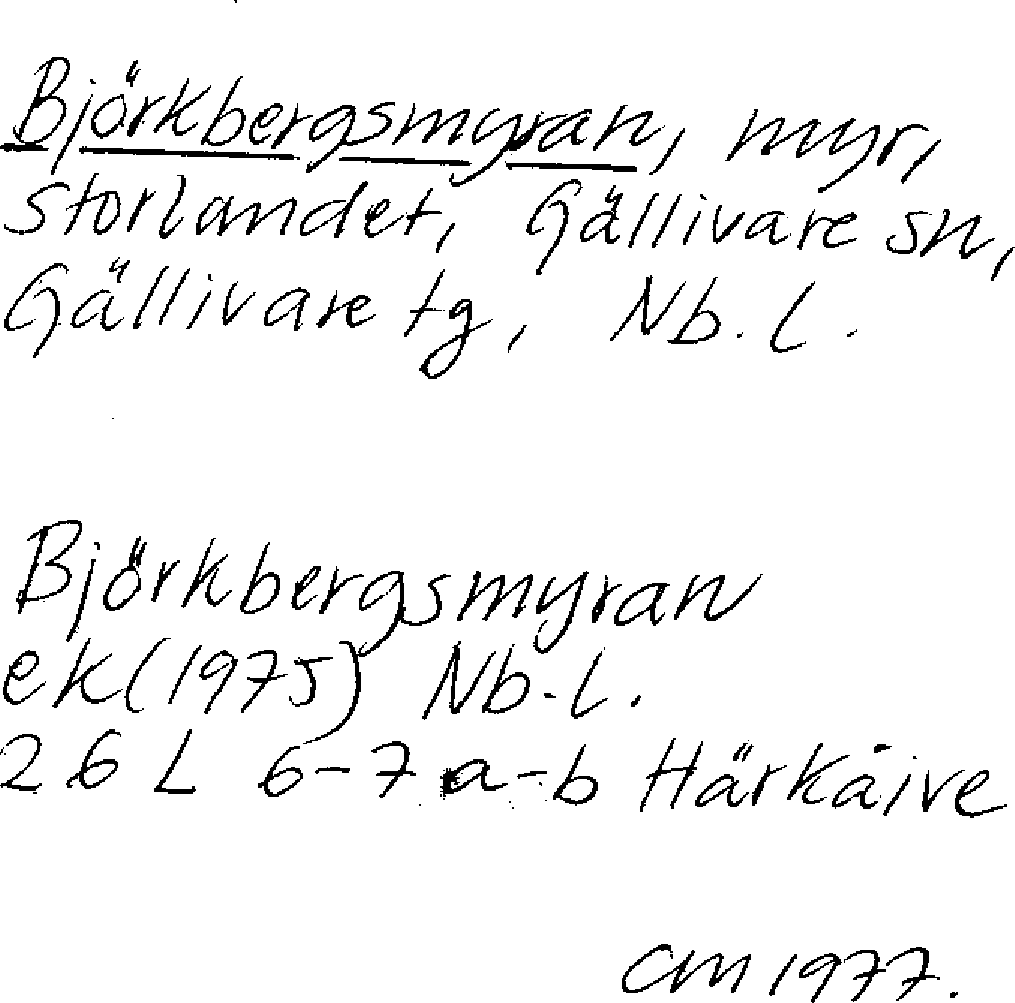 Björkbergsmyran, myr,
Storlandet, Gällivare sn,
Gällivare tg, Nb. l.
Björkbergsmyran
ek (1975) Nb. l.
26 L 6-7 a-b Härkåive
CM 1977.